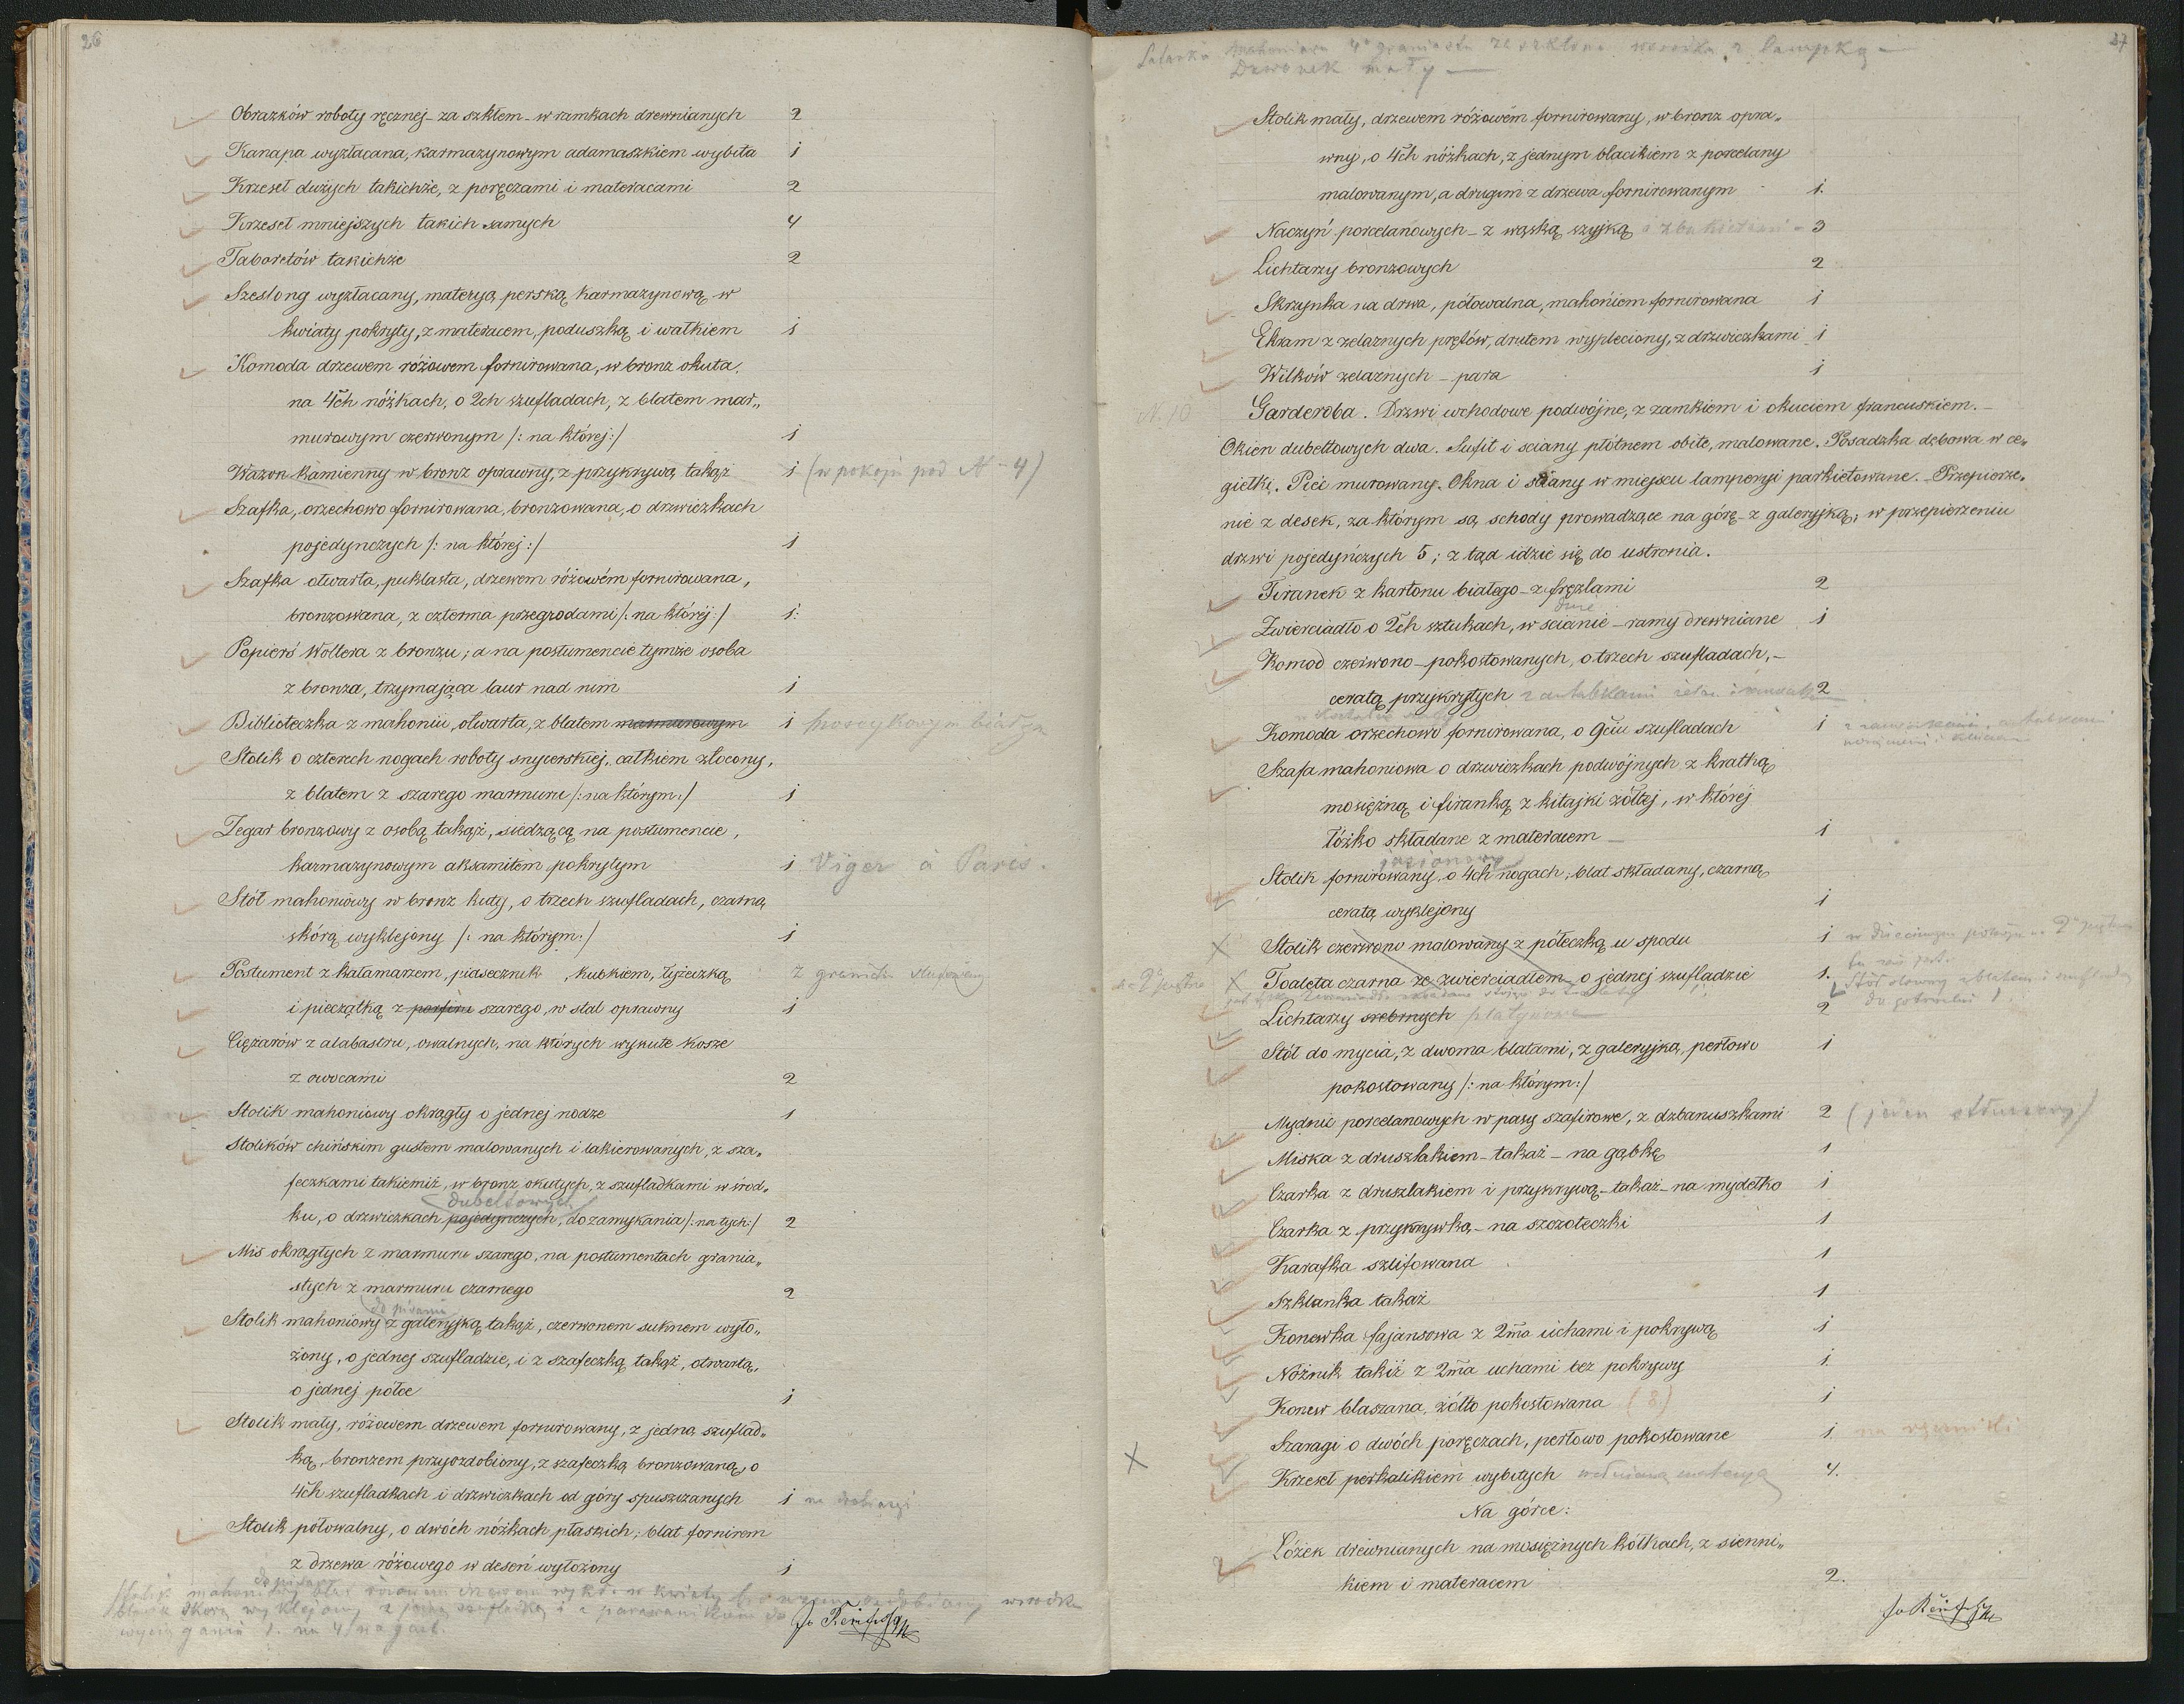 26
Obrazków roboty ręcznej - za szkłem - w ramkach drewnianych 2
Kanapa wyzłacana, karmazynowym adamaszkiem wybita 1
Krzeseł dużych takichże, z poręczami i materacami 2
Krzeseł mniejszych takich samych 4
Taboretów takichże 2
Szeslong wyzłacany, materyą perską karmazynową w
kwiaty pokryty, z materacem, poduszką i wałkiem 1
Komoda drzewem różowem fornirowana, w bronz okuta,
na 4ch nóżkach, o 2ch szufladach, z blatem mar„
murowym czerwonym /: na której :/ 1
Wazon kamienny w bronz oprawny, z przykrywą takąż 1 (w pokoju pod N-4)
Szafka, orzechowo fornirowana, bronzowana, o drzwiczkach
pojedynczych /: na której :/ 1
Szafka otwarta, puklasta, drzewem różowém fornirowana,
bronzowana, z czterma przegrodami /: na któréj :/ 1.
Popierś Woltera z bronzu; a na postumencie tymże osoba
z bronza, trzymająca laur nad nim 1
Biblioteczka z mahoniu, otwarta, z blatem marmurowym 1
Stolik o czterech nogach roboty snycerskiej, całkiem złocony,
z blatem z szarego marmuru /: na którym :/ 1
Zegar bronzowy z osobą takąż, siedzącą na postumencie,
karmazynowym aksamitem pokrytym 1 Viger à Paris.
Stół mahoniowy w bronz kuty, o trzech szufladach, czarną
skórą wyklejony /: na którym :/ 1
Postument z kałamarzem, piasecznik, kubkiem, łyżeczką
i pieczątką z porfiru szarego, w stal oprawny 1
Ciężarów z alabastru, owalnych, na których wykute kosze
z owocami 2
Stolik mahoniowy okrągły o jednej nodze 1
Stolików chińskim gustem malowanych i lakierowanych, z sza„
feczkami takiemiż, w bronz okutych, z szufladkami w środ„
dubeltowych
ku, o drzwiczkach pojedynczych, do zamykania /: na tych :/ 2
Mis okrągłych z marmuru szarego, na postumentach grania„
stych z marmuru czarnego 2
do pisania
Stolik mahoniowy z galeryjką takąż, czerwonem suknem wyło„
żony, o jednej szufladzie, i z szafeczką takąż, otwartą,
o jednej półce 1
Stolik mały, różowem drzewem fornirowany, z jedną szuflad„
ką, bronzem przyozdobiony, z szafeczką bronzowaną, o
4ch szufladkach i drzwiczkach od góry spuszczanych 1
Stolik półowalny, o dwóch nóżkach płaskich; blat fornirem
z drzewa różowego w deseń wyłożony 1
27
Dzwonek mały —
Stolik mały, drzewem różowém fornirowany, w bronz opra„
wny, o 4ch nóżkach, z jednym blacikiem z porcelany
malowanym, a drugim z drzewa fornirowanym 1.
Naczyń porcelanowych - z wąską szyjką 3
Lichtarzy bronzowych 2
Skrzynka na drwa, półowalna, mahoniem fornirowana 1
Ekran z zelaznych prętów, drutem wypleciony, z drzwiczkami 1
Wilków zelaznych - para 1
N. 10 Garderoba. Drzwi wchodowe podwójne, z zamkiem i okuciem francuskiem. -
Okien dubeltowych dwa. Sufit i sciany płótnem obite, malowane. Posadzka dębowa w ce„
giełkę. Piec murowany. Okna i sciany w miejscu lamperyi parkietowane. - Przepierze„
nie z desek, za którym są schody prowadzące na górę - z galeryjką; w przepierzeniu
drzwi pojedyńczych 5; z tąd idzie się do ustronia.
Firanek z kartonu białego - z fręzlami 2
Zwierciadło o 2ch sztukach, w scianie - ramy drewniane 1
Komod czerwono-pokostowanych, o trzech szufladach, -
ceratą przykrytych 2
Komoda orzechowo fornirowana, o 9ciu szufladach 1
Szafa mahoniowa o drzwiczkach podwójnych z kratką
mosiężną i firanką z kitajki żółtej, w której
łóżko składane z materacem - 1
jasionowy
Stolik fornirowany, o 4ch nogach; blat składany, czarną
ceratą wyklejony 1
Stolik czerwono malowany z półeczką u spodu 1
Toaleta czarna ze zwierciadłem o jednej szufladzie 1.
Lichtarzy srebrnych platynowe 2
Stół do mycia, z dwoma blatami, z galeryjką, perłowo 1
pokostowany /: na którym :/
Mydnic porcelanowych w pasy szafirowe, z dzbanuszkami 2
Miska z druszlakiem - takaż - na gąbkę 1
Czarka z druszlakiem i przykrywą - takaż - na mydełko 1
Czarka z przykrywką - na szczoteczki 1
Karafka szlifowana 1
Szklanka takaż 1
Konewka fajansowa z 2ma uchami i pokrywą 1
Nożnik takiż z 2ma uchami bez pokrywy 1
Konew blaszana, żółto pokostowana (8) 1
Szaragi o dwóch poręczach, perłowo pokostowane 1.
Krzeseł perkalikiem wybitych wełnianą materyą 4.
Na górce:
Łóżek drewnianych na mosiężnych kółkach, z sienni„
kiem i materacem 2.